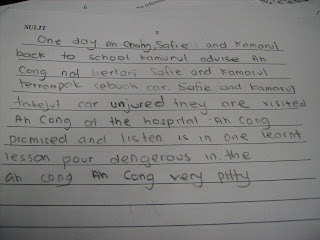 SULIT
One day An Chong, Safie and Kamarul
back to school kamurul advise An
Cong not berlari Safie and Kamarul
ternampak sebuah car. Safie and Kamarul
takejut car unjured they are visited
An Cong at the hospital An Cong
promised and listen is in one learnt
lesson pour dengerous in the
an cong An Cong very pitty